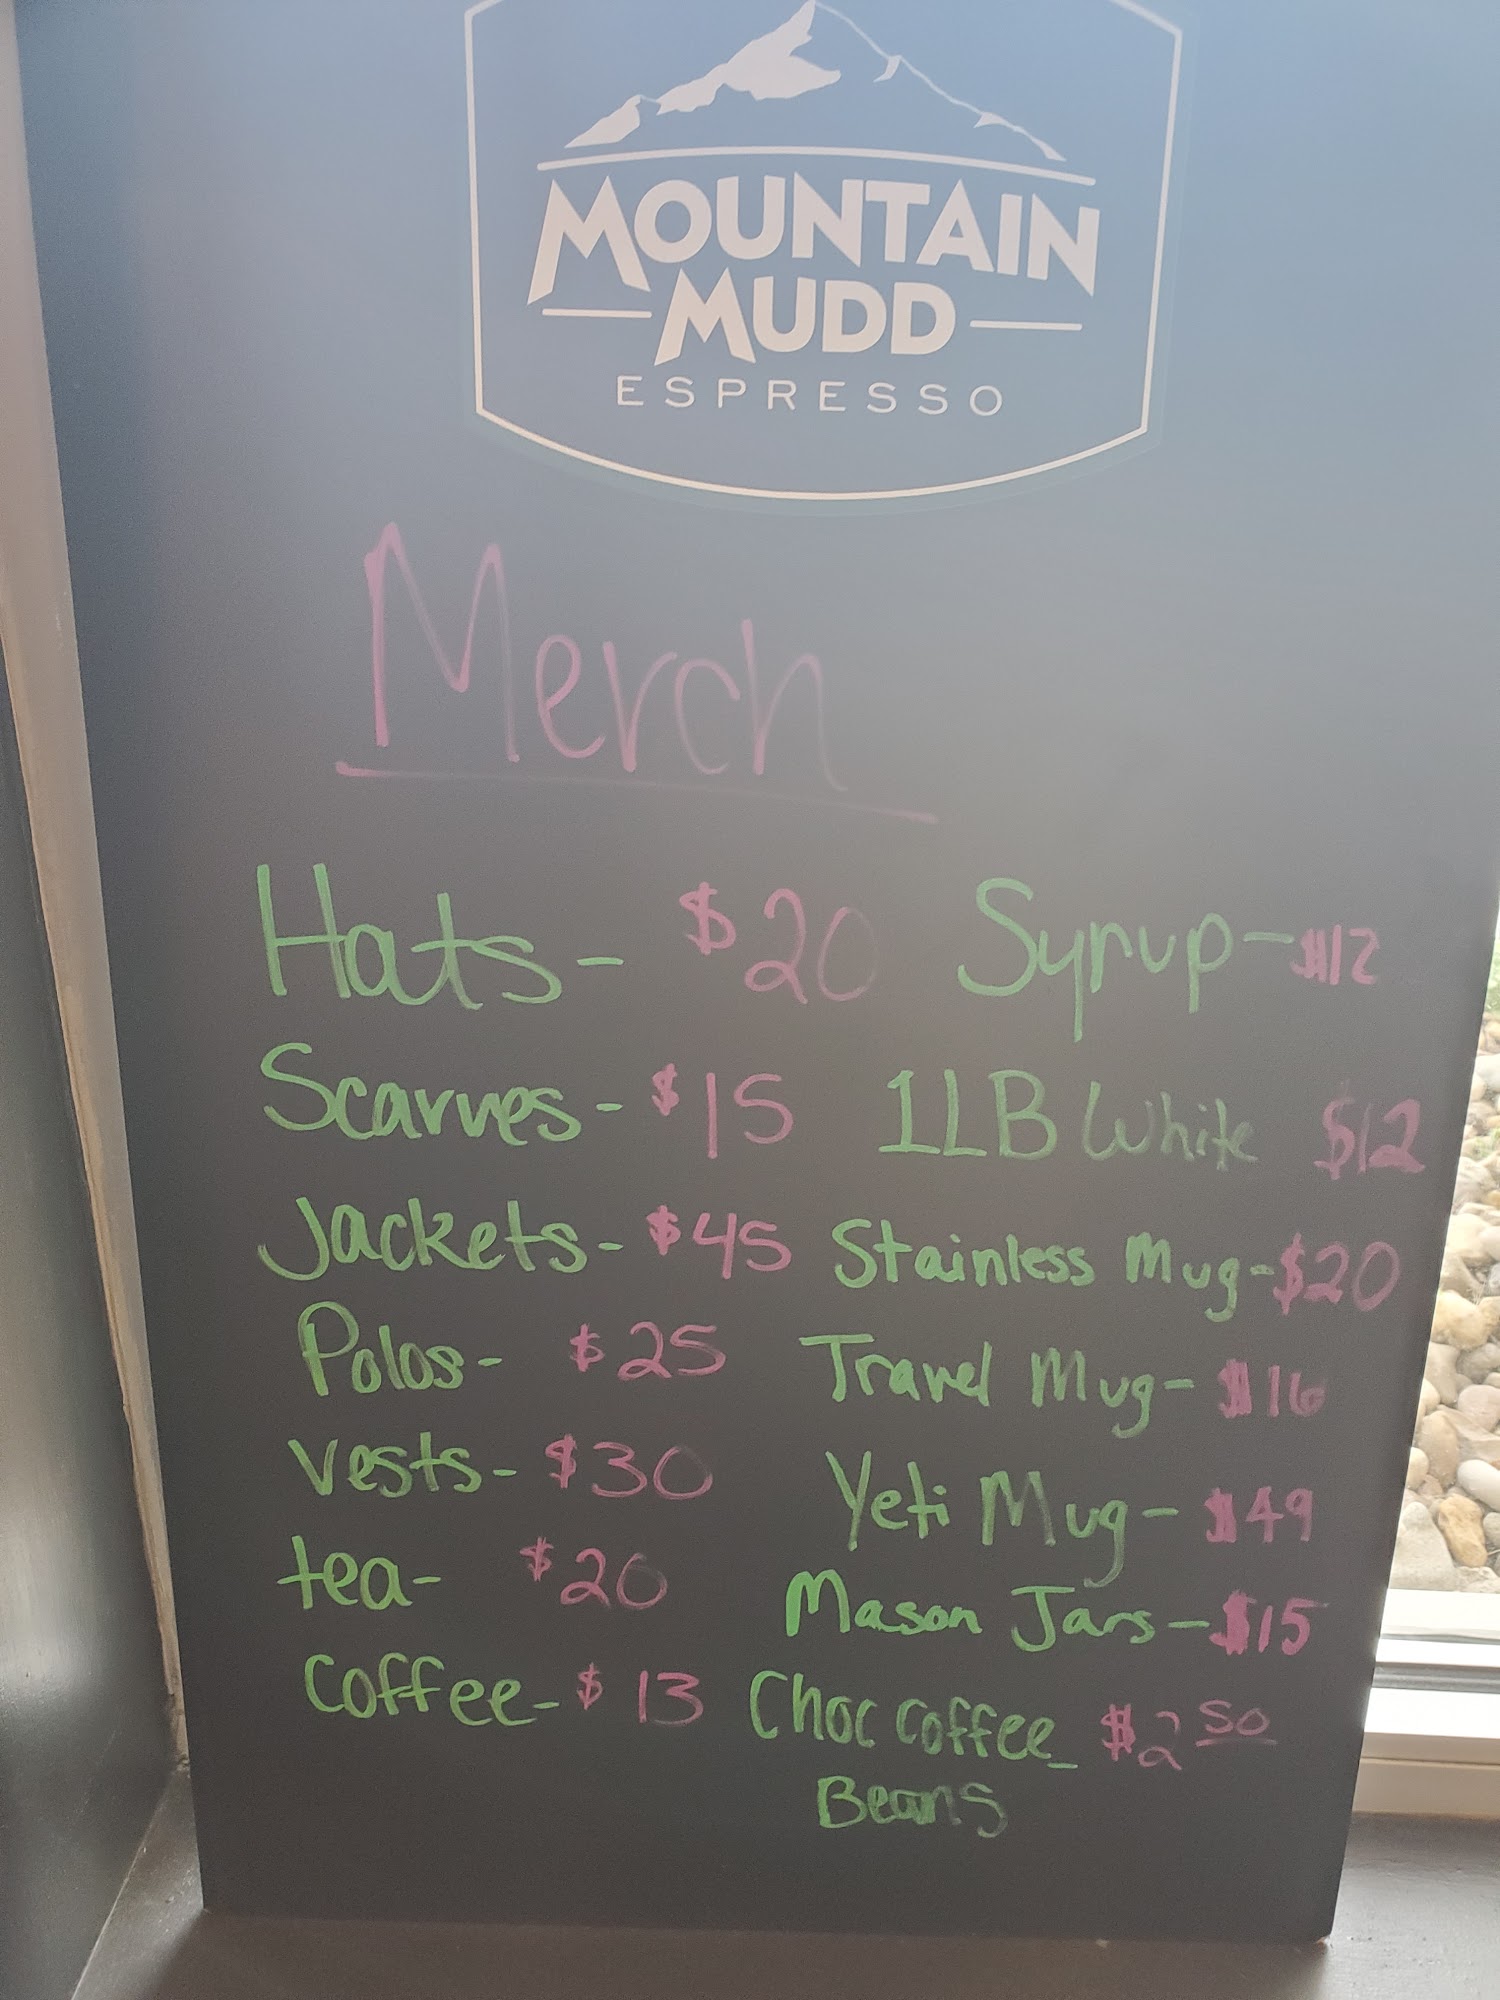 MOUNTAIN
MUDD
ESPRESSO
Merch
Hats - $20
Scarves - $15
Jackets - $45
Polos - $25
Vests - $30
tea - $20
Coffee - $13
Syrup - $12
1LB White $12
Stainless Mug - $20
Travel Mug - $16
Yeti Mug - $49
Mason Jars - $15
Choc Coffee - $2 50
Beans